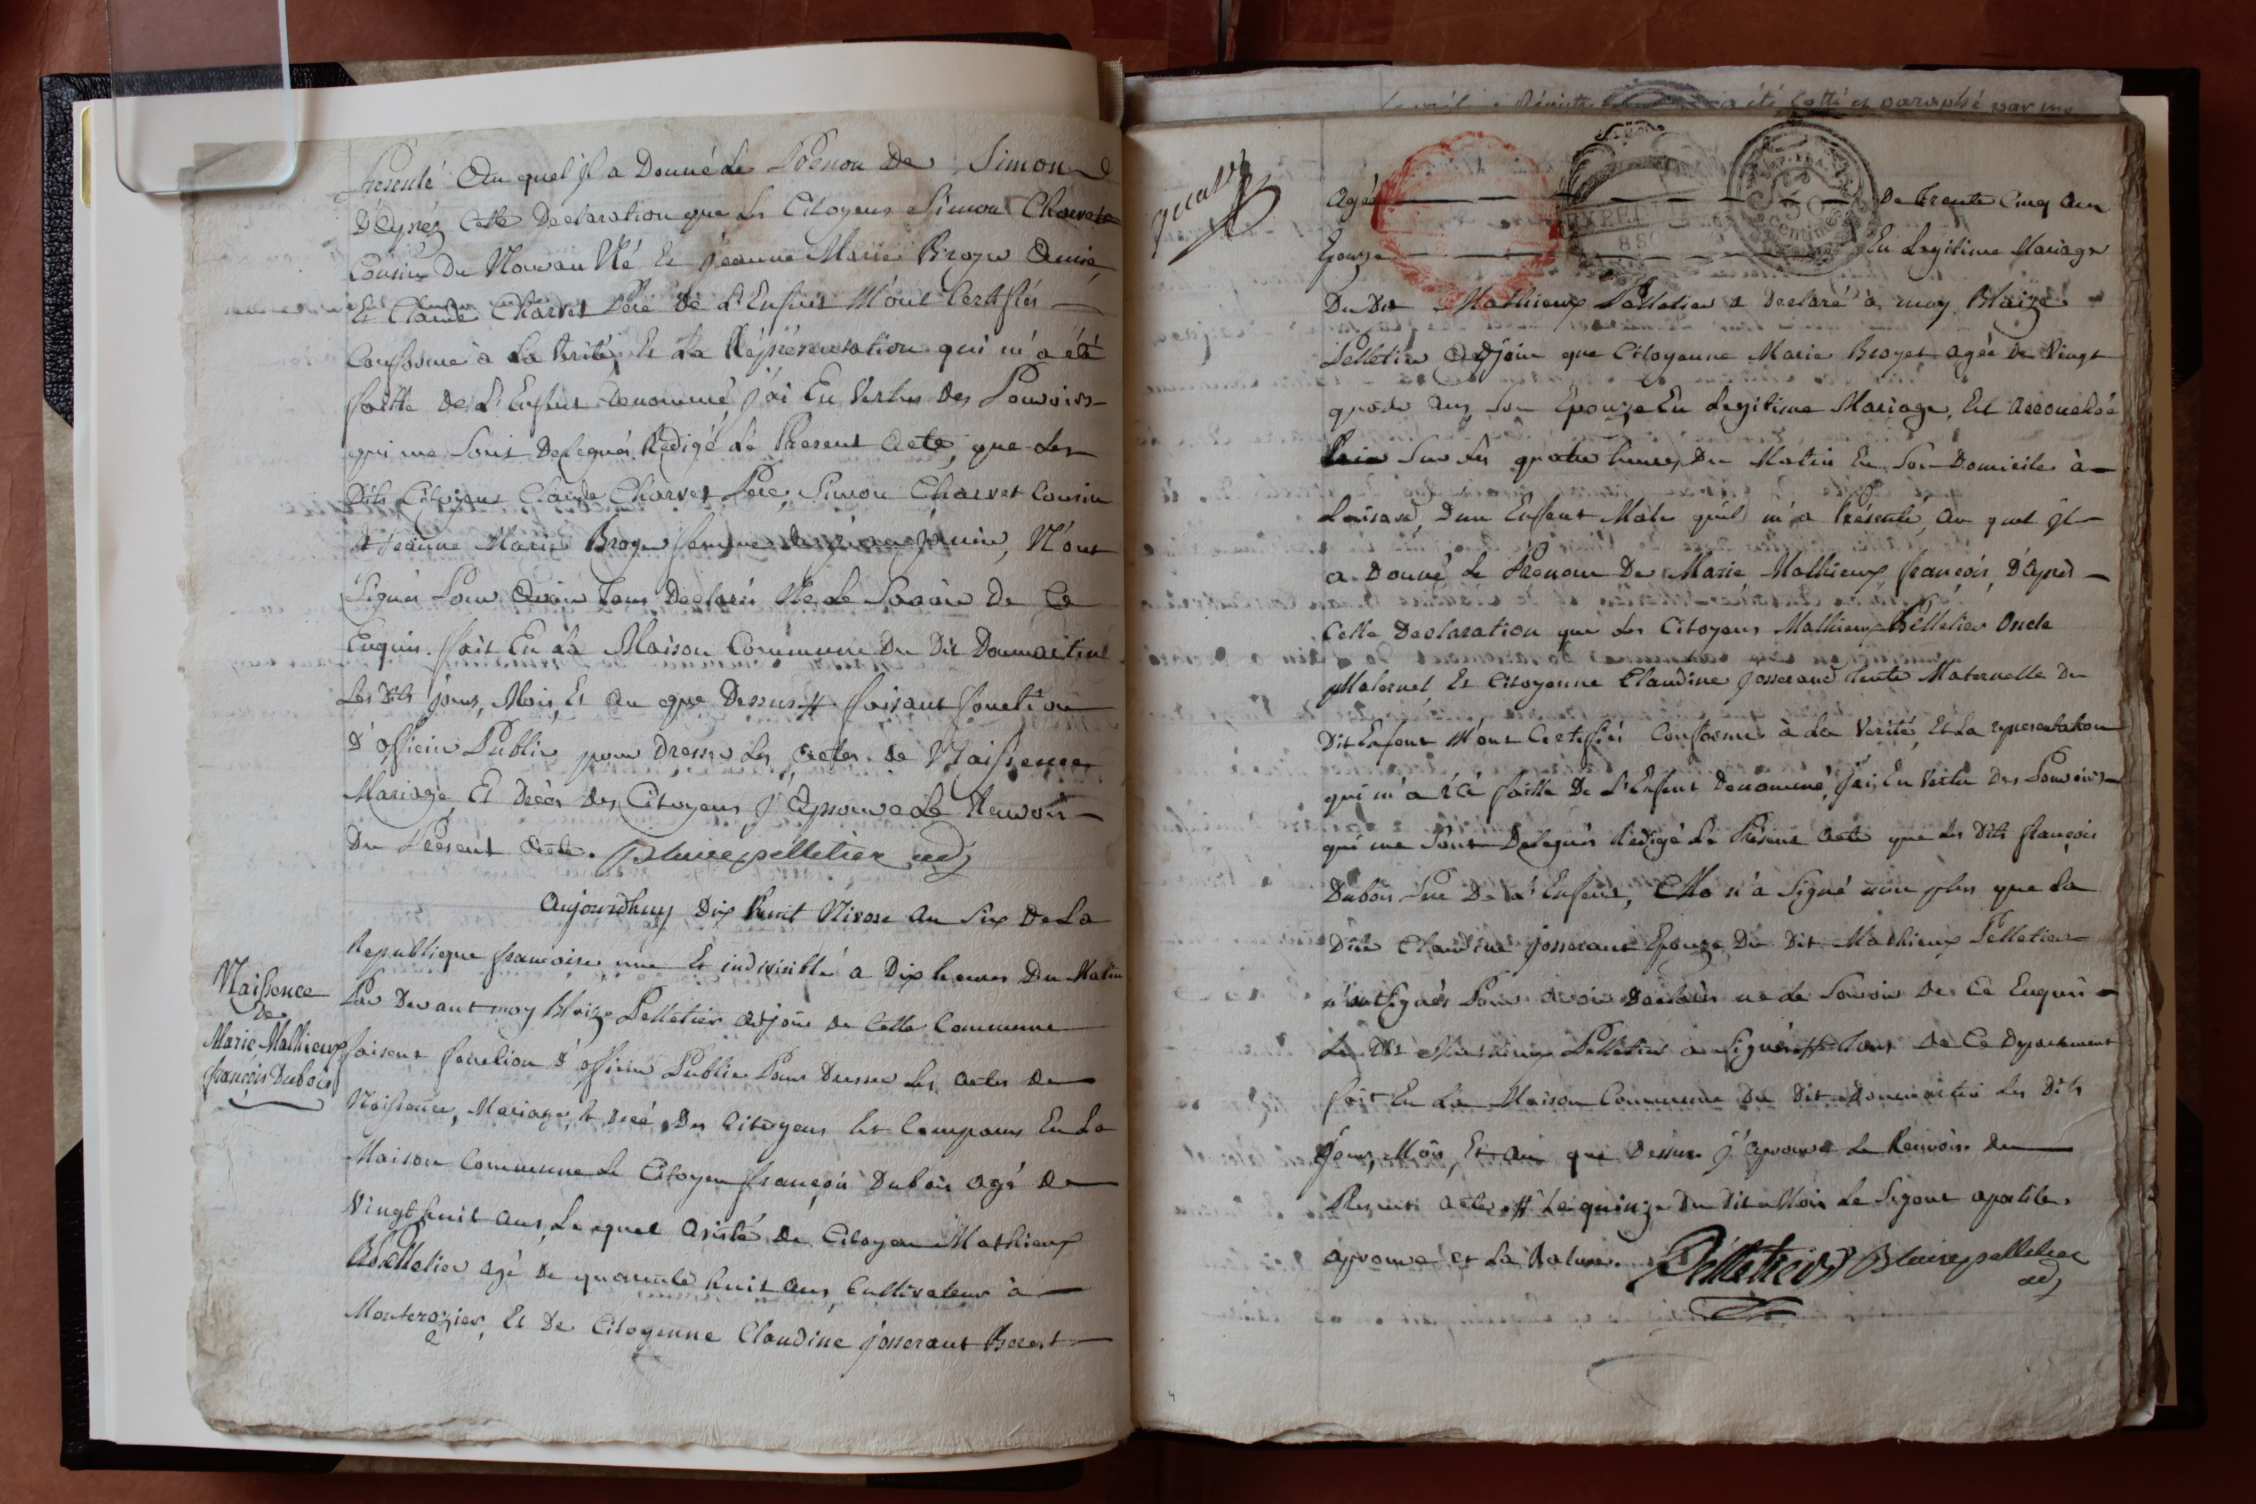 Presenté Au quel Il a Donné Le Prénon De Simon
D'Après Cette Declaration que Les Citoyens Simon Charvet
Cousin Du Nouveau Né Et jeanne Marie Broyer Amie,
Et Claude Charvet Père De L'Enfant M'ont Certifiés
Conforme à La Verité, Et La Représentation qui m'a été
faitte De L'Enfant Denommé j'ai En Vertus Des Pouvoirs
qui me Sont Delegués Redigé Le Present Acte, que Les
Dits Citoyens Claude Charvet Père, Simon Charvet Cousin
Et jeanne Marie Broyer femme, N'ont
Signés Pour Avoir Tous Declarés Ne Le Savoir De Ce
Enquis. fait En La Maison Commune Du Dit Dommartin
Les Dits jours, Mois, Et An que Dessus # faisant fonction
D'officier Public pour Dresser Les Actes de Naissence
Mariage Et Decès Des Citoyens J'Aprouve Le Renvois
Du Present Acte. Blaise pelletier adj
Aujourdhuy Dix huit Nivose An Six De La
Republique francoise une Et indivisible à Dix heures Du Matin
Par Devant moy Blaize Pelletier Adjoin de Cette Commune
faisent fonction d'officier Public Pour Dresser Les Actes De
Naissence, Mariage, Et Decé Des Citoyens Est Comparus En La
Maison Commune Le Citoyen françois Dubois agé De
Vingt huit ans, Le quel Asisté De Citoyen Mathieux
Pelletier agé De quarente huit ans, Cultivateur à
Monterozier, Et De Citoyenne Claudine josserant
Naissence
De
Marie Mathieux
françois Dubois
Agé De Trente Cinq Ans
Epouze En Legitime Mariage
Du Dit Mathieux Pelletier a Declaré à moy Blaize
Pelletier Adjoin que Citoyenne Marie Broyer agée De Vingt
quatre Ans, Son Epouze En Legitime Mariage, Est Accouchée
Sur Les quatre heures Du Matin En Son Domicile à
D'un Enfent Male qu'il m'a Présenté, Au quel Il
a Donné Le Prenom De Marie Mathieux françois, D'Après
Cette Declaration que Les Citoyens Mathieux Pelletier Oncle
Maternel Et Citoyenne Claudine josserand Tente Maternelle Du
Dit Enfent M'ont Certifiés Conforme à La Verité, Et La representation
qui m'a été faitte De L'Enfent Denommé, j'ai En Vertu Des Pouvoirs
qui me Sont Delegués Redigé Le Présent Acte que Les Dits françois
Dubois Père De L'Enfent, n'a Signé non plus que La
Dite Claudine josserant Epouze Du Dit Mathieux Pelletier
n'ont Signés Pour Avoir Declarés ne Le Savoir De Ce Enquis
Le Dit Mathieux Pelletier a Signé # Tous De Ce Departement
fait En La Maison Commune Du Dit Dommartin Les Dits
jour, Mois, Et An que Dessus j'Aprouve Le Renvois du
Present Acte # Le quinze Du Dit Mois
aprouvé et La Rature. Pelletier Blaise pelletier
adj
50
Centimes